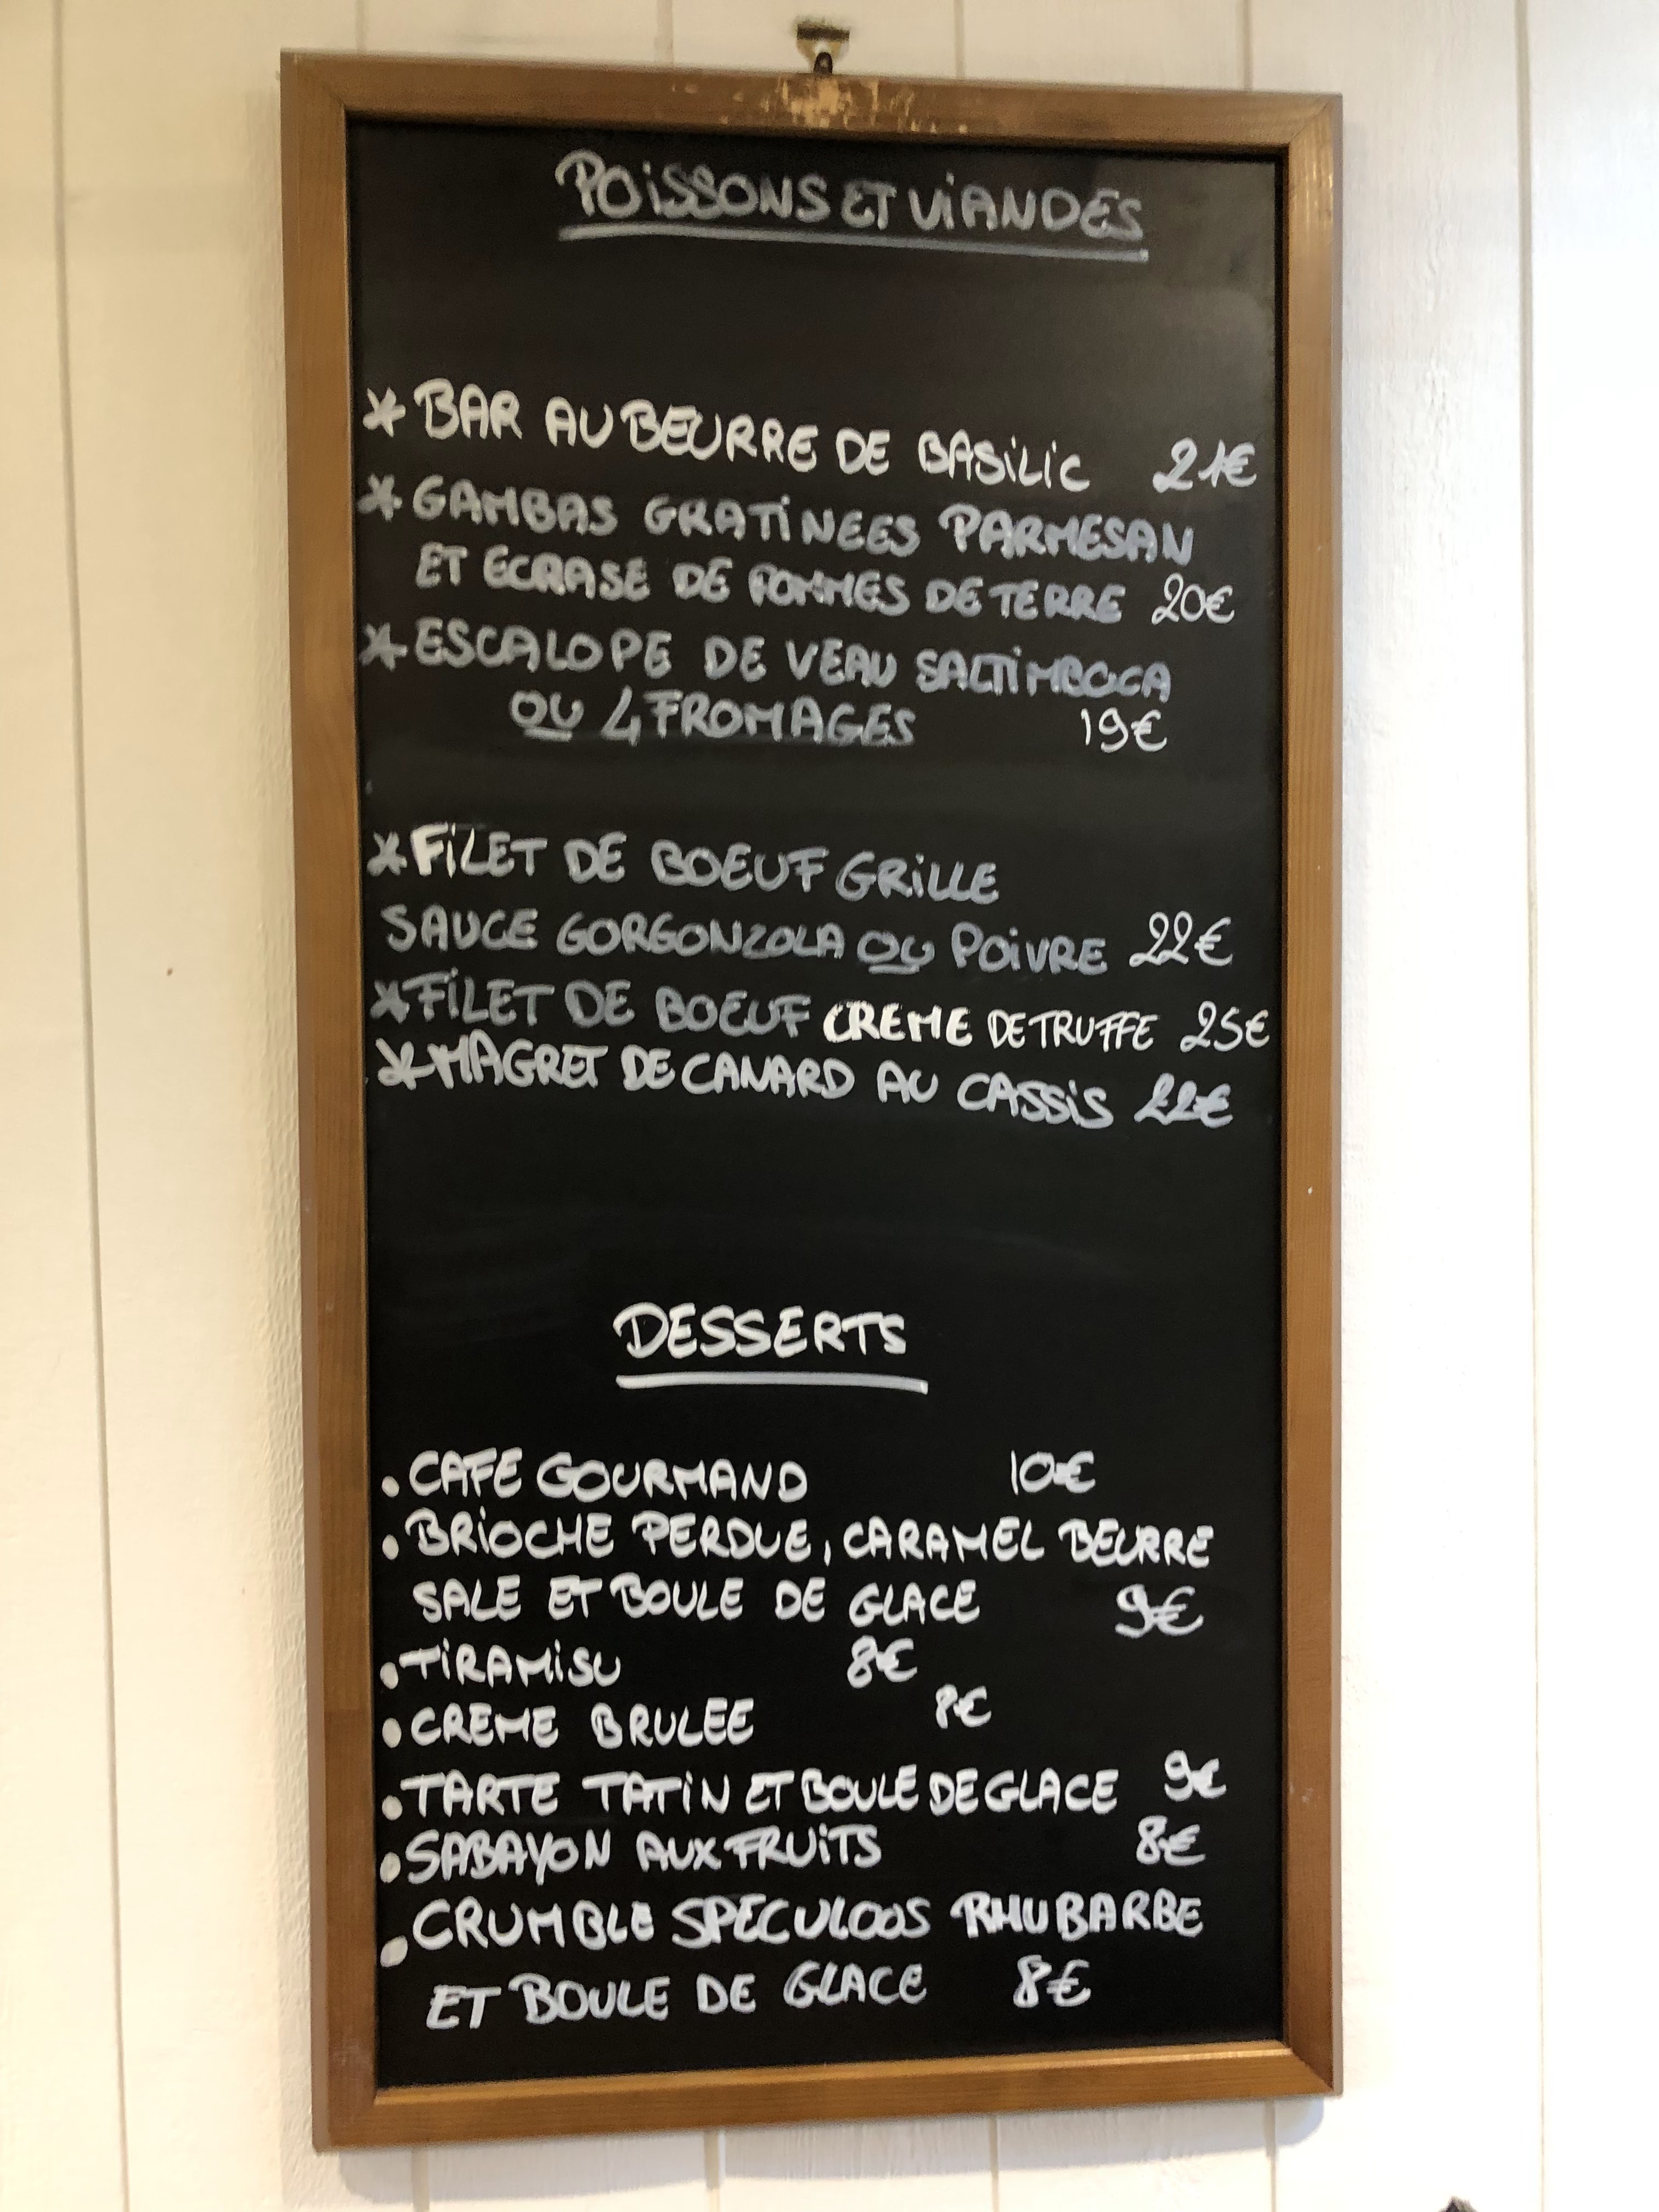 POISSONS ET VIANDES
* BAR AU BEURRE DE BASILIC 21€
* GAMBAS GRATINEES PARMESAN
ET ECRASE DE POMMES DE TERRE 20€
* ESCALOPE DE VEAU SALTIMBOCA
OU 4 FROMAGES 19€
* FILET DE BOEUF GRILLE
SAUCE GORGONZOLA OU POIVRE 22€
* FILET DE BOEUF CREME DE TRUFFE 25€
* MAGRET DE CANARD AU CASSIS 22€
DESSERTS
. CAFE GOURMAND 10€
. BRIOCHE PERDUE, CARAMEL BEURRE
SALE ET BOULE DE GLACE 9€
. TIRAMISU 8€
. CREME BRULEE 8€
. TARTE TATIN ET BOULE DE GLACE 9€
. SABAYON AUX FRUITS 8€
. CRUMBLE SPECULOOS RHUBARBE
ET BOULE DE GLACE 8€